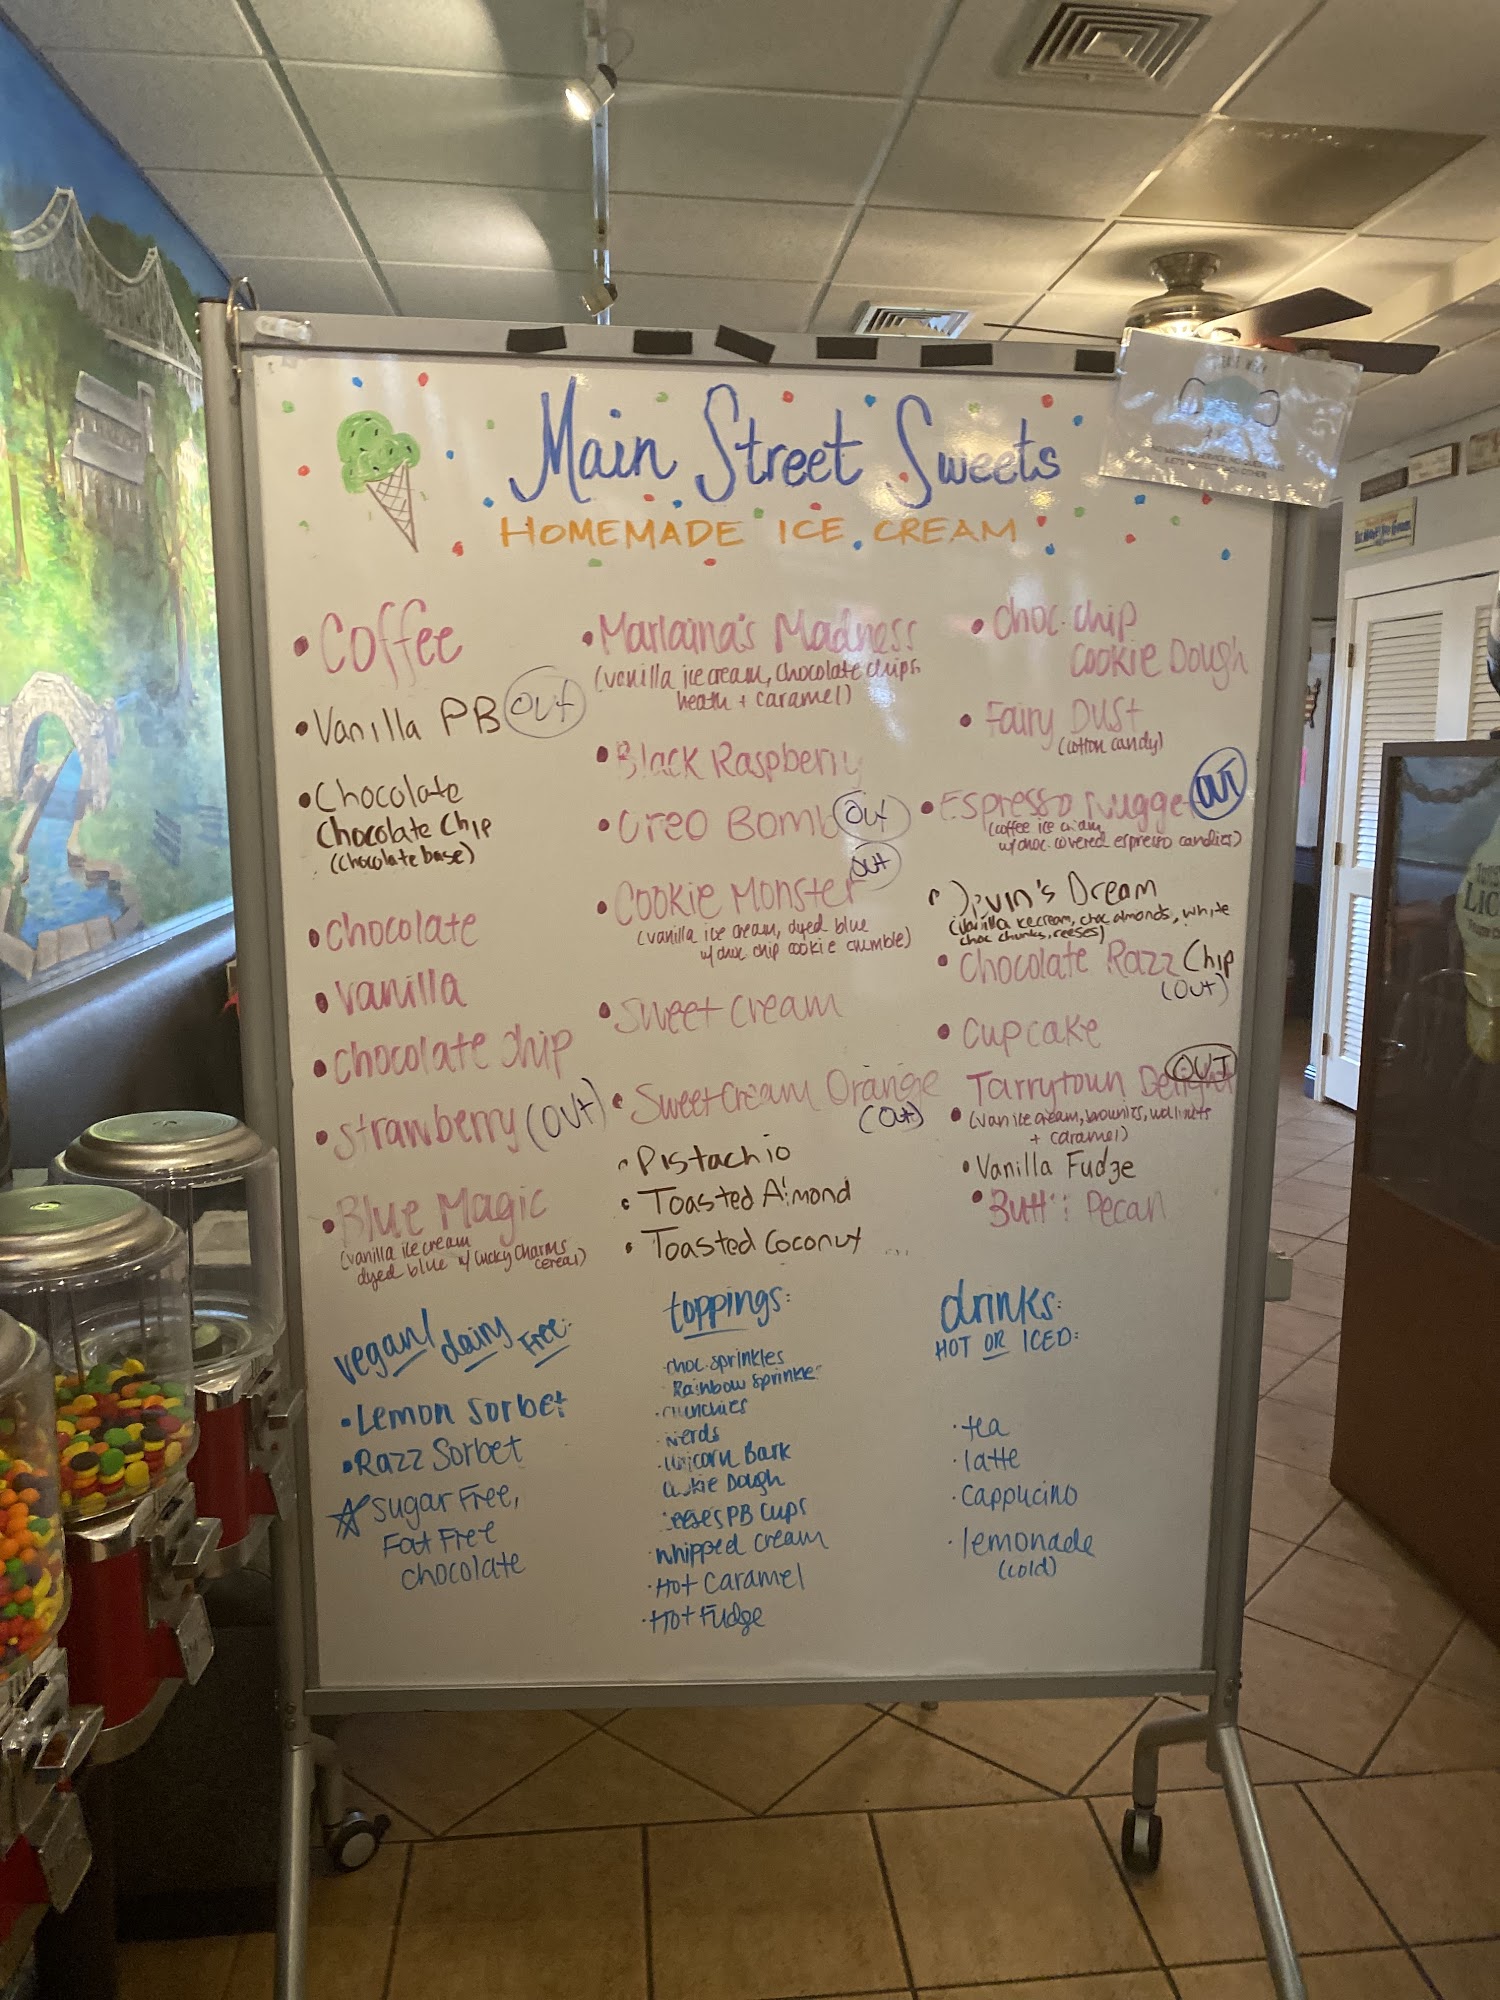 Main Street Sweets
HOMEMADE ICE CREAM
• Coffee
• Vanilla PB OUT
• Chocolate
Chocolate Chip
(chocolate base)
• Chocolate
• Vanilla
• Chocolate Chip
• Strawberry (OUT)
• Blue Magic
(vanilla ice cream
dyed blue w/ Lucky Charms
cereal)
• Marlaina's Madness
(vanilla ice cream, chocolate chips
heath + caramel)
• Black Raspberry
• Oreo Bomb OUT
OUT
• Cookie Monster
(vanilla ice cream, dyed blue
w/ choc chip cookie crumble)
• Sweet Cream
• Sweet Cream Orange
(OUT)
• Pistachio
• Toasted Almond
• Toasted Coconut
• choc. chip
Cookie Dough
• Fairy Dust
(cotton candy)
• Espresso Nugget OUT
(coffee ice cream
w/ choc. covered espresso candies)
Dream
(vanilla ice cream, choc almonds, white
choc chunks, reeses)
• Chocolate Razz Chip
(OUT)
• Cupcake
OUT
Tarrytown Delight
• (van ice cream, brownies, walnuts
+ caramel)
• Vanilla Fudge
• Butter Pecan
vegan/dairy Free:
• Lemon Sorbet
• Razz Sorbet
Sugar Free,
Fat Free
chocolate
toppings:
· choc. sprinkles
· Rainbow Sprinkle
· crunchies
· Nerds
· Unicorn Bark
Cookie Dough
Reese's PB Cups
whipped cream
· Hot Caramel
· Hot Fudge
drinks:
HOT OR ICED:
· tea
· latte
· cappucino
· lemonade
(cold)